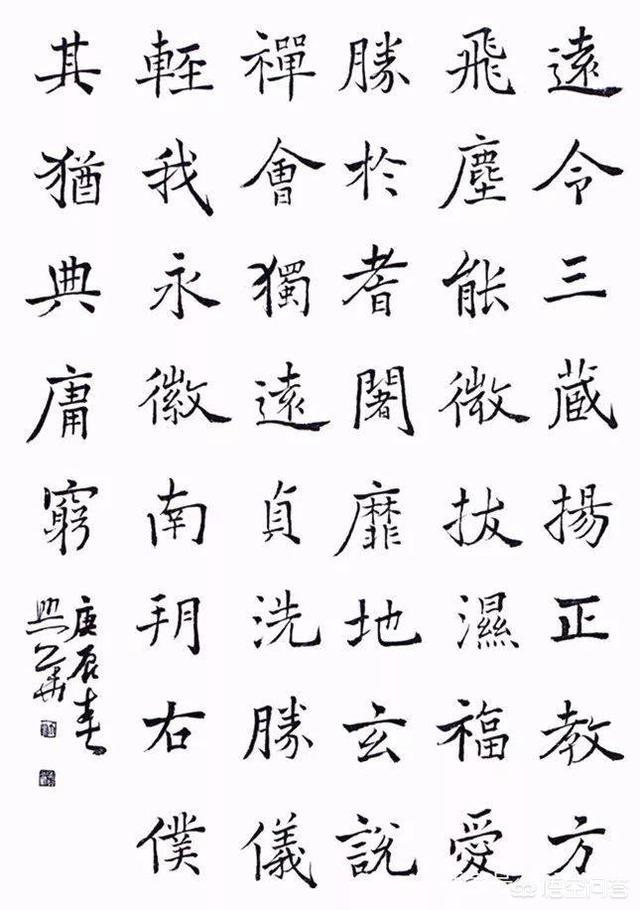 遠令三蔵揚正教方
飛塵能微拔濕福愛
勝於耆闍靡地玄說
禪會獨遠貞洗勝儀
輊我永徽南玥右僕
其猶典庸窮
庚辰春
悟空问答